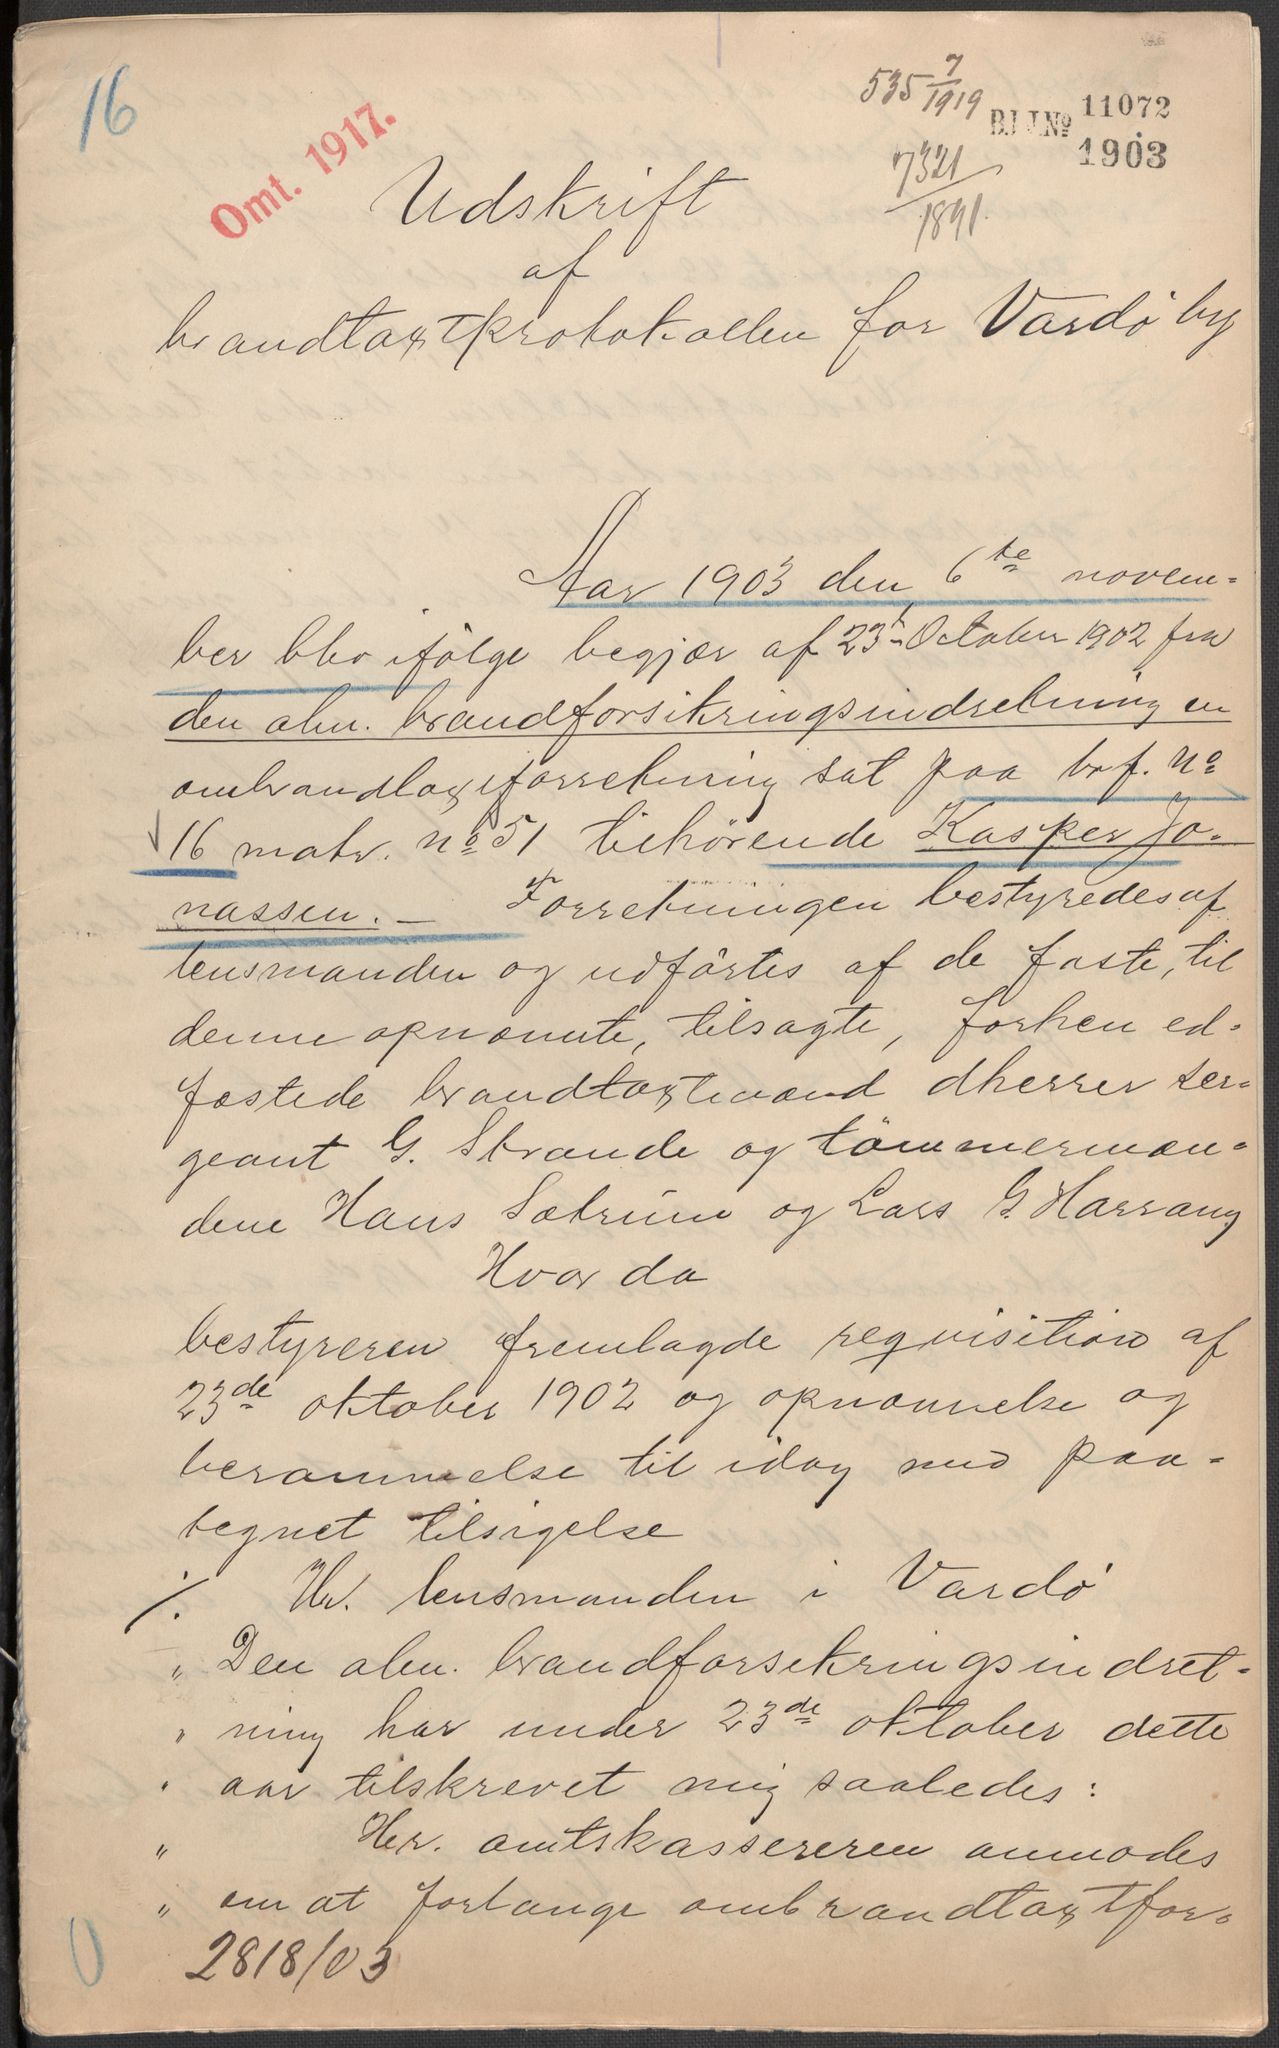 16
Omt. 1917.
535 7/1919
B.I J.No 11072
1903
7321/1891.
Udskrift
af
brandtaxtprotokollen for Vardö by
Aar 1903 den 6te novem-
ber blev ifölge begjær af 23de October 1902 fra
den alm. brandforsikringsindretning en
ombrandtaxtforretning sat paa br.f. No
16 matr. No 51 tilhörende Kasper Jo-
nassen. — Forretningen bestyredes af
lensmanden og udförtes af de faste, til
denne opnævnte, tilsagte, forhen ed-
fæstede brandtaxtmænd dherrer ser-
geant G. Strande og tömmermæn-
dene Hans Sætrum og Lars G. Harrang
Hvor da
bestyreren fremlagde requisition af
23de oktober 1902 og opnævnelse og
berammelse til idag med paa-
tegnet tilsigelse
./. Hr. lensmanden i Vardö
" Den alm. brandforsikringsindret-
" ning har under 23de oktober dette
" aar tilskrevet mig saaledes:
" Hr. amtskassereren anmodes
" om at forlange ombrandtaxtfor-
2818/03